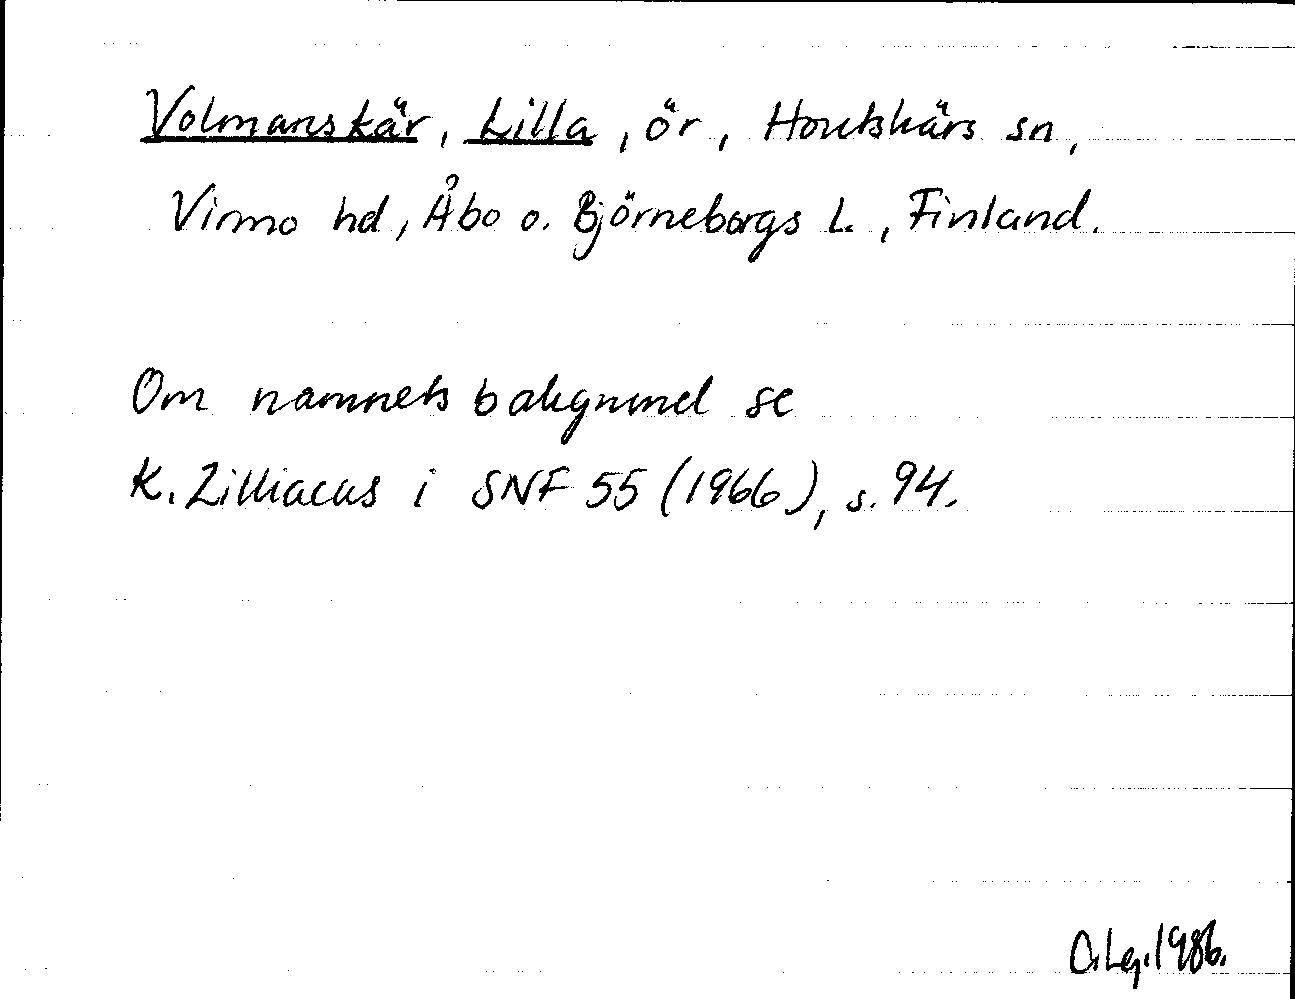 Volmanskär, Lilla, ör, Houtskärs sn,
Virmo hd, Åbo o. Björneborgs L., Finland.
Om namnets bakgrund se
K. Zilliacus i SNF 55 (1966), s. 94.
O.Lg. 1986.